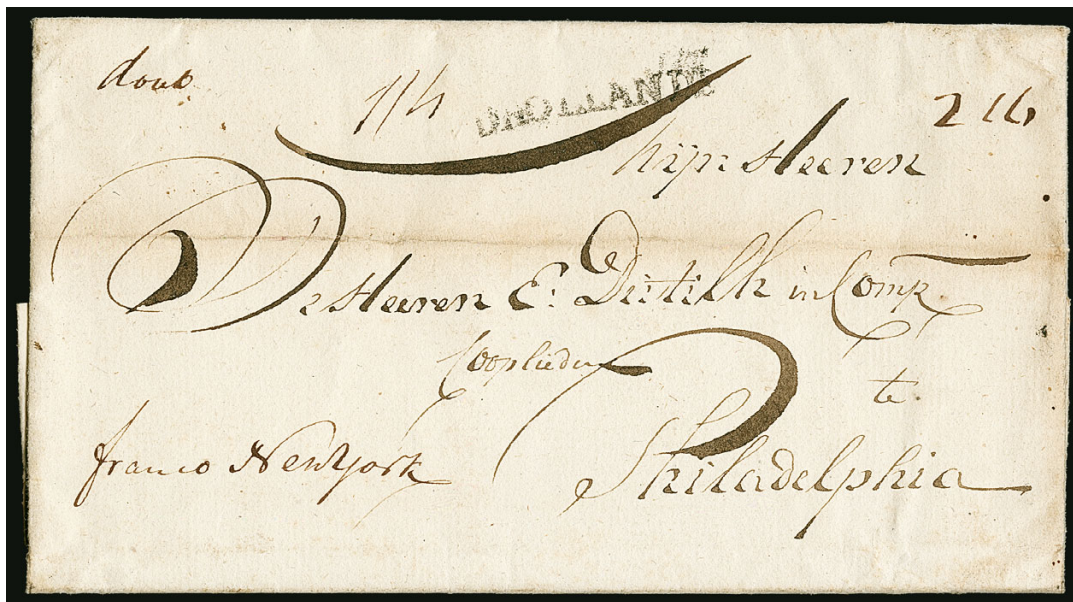 doub
1/4
D'HOLLANDE
2 16
Mijn Heeren
De Heeren E: Dutilh in Comp
Cooplieden
te
franco New York
Philadelphia